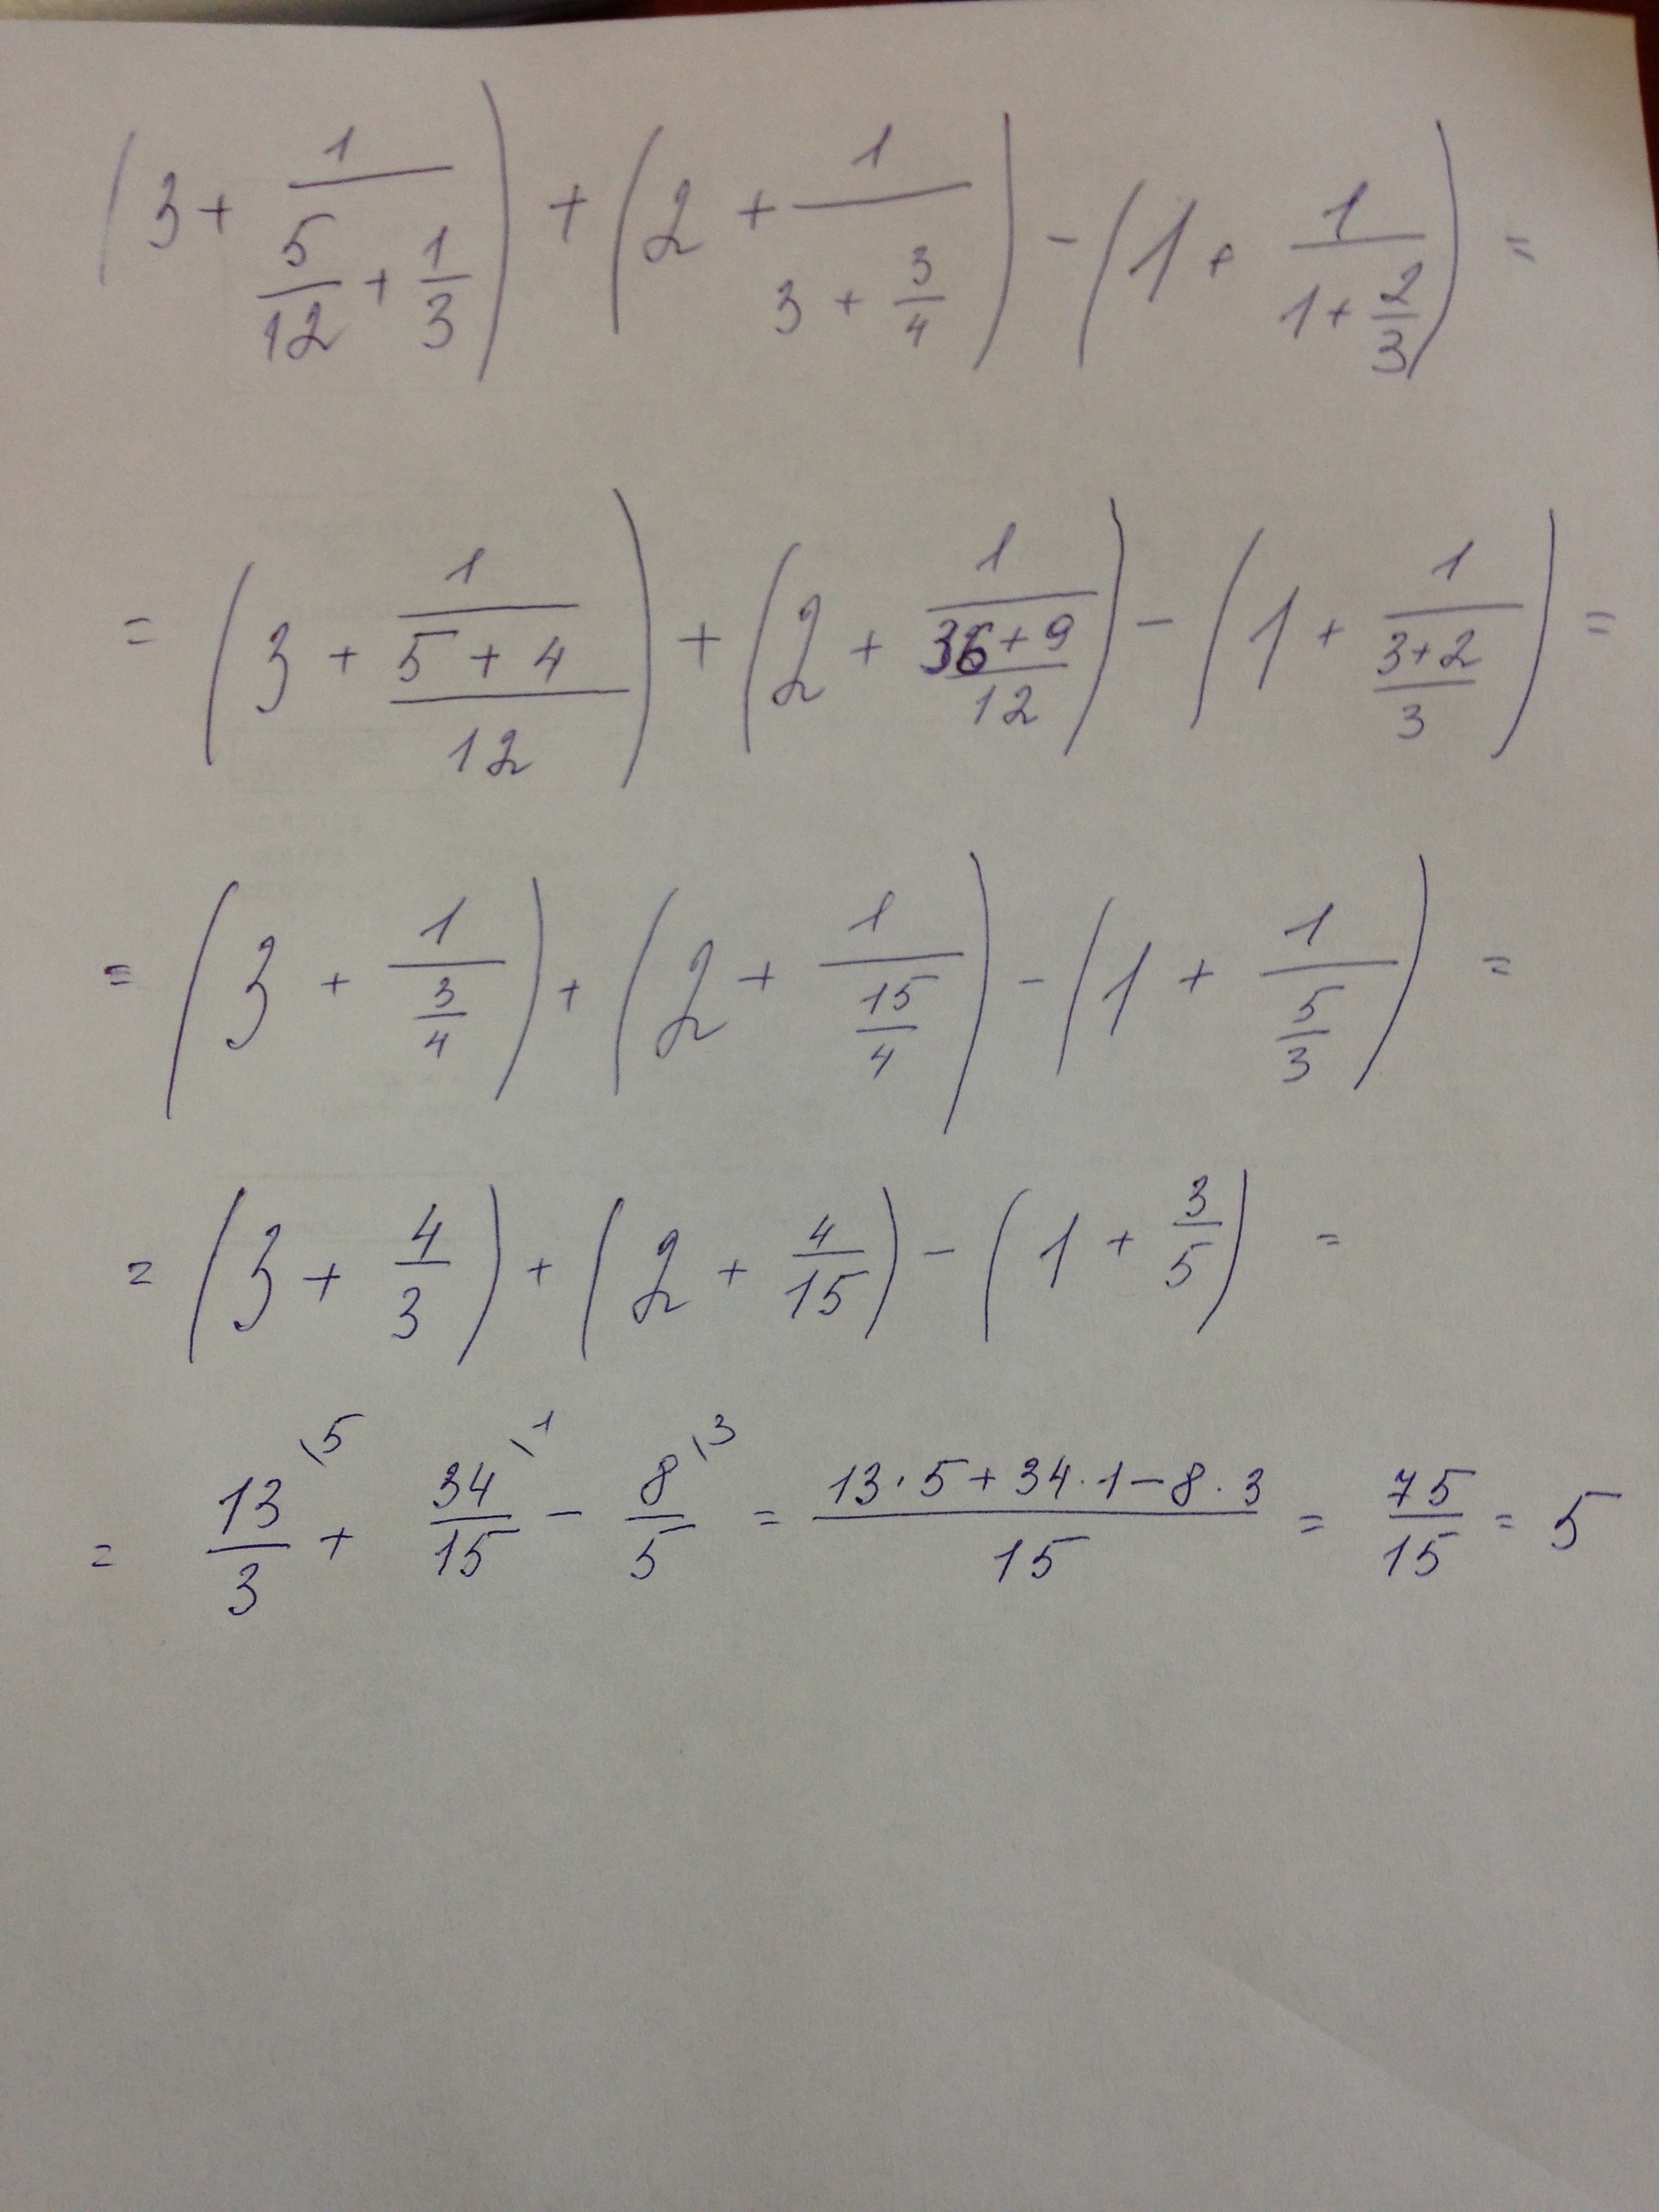 (3 + 1/(5/12 + 1/3)) + (2 + 1/(3 + 3/4)) - (1 + 1/(1 + 2/3)) =
= (3 + 1/((5 + 4)/12)) + (2 + 1/((36 + 9)/12)) - (1 + 1/((3 + 2)/3)) =
= (3 + 1/(3/4)) + (2 + 1/(15/4)) - (1 + 1/(5/3)) =
= (3 + 4/3) + (2 + 4/15) - (1 + 3/5) =
= 13/3 \5 + 34/15 \1 - 8/5 \3 = (13·5 + 34·1 - 8·3)/15 = 75/15 = 5